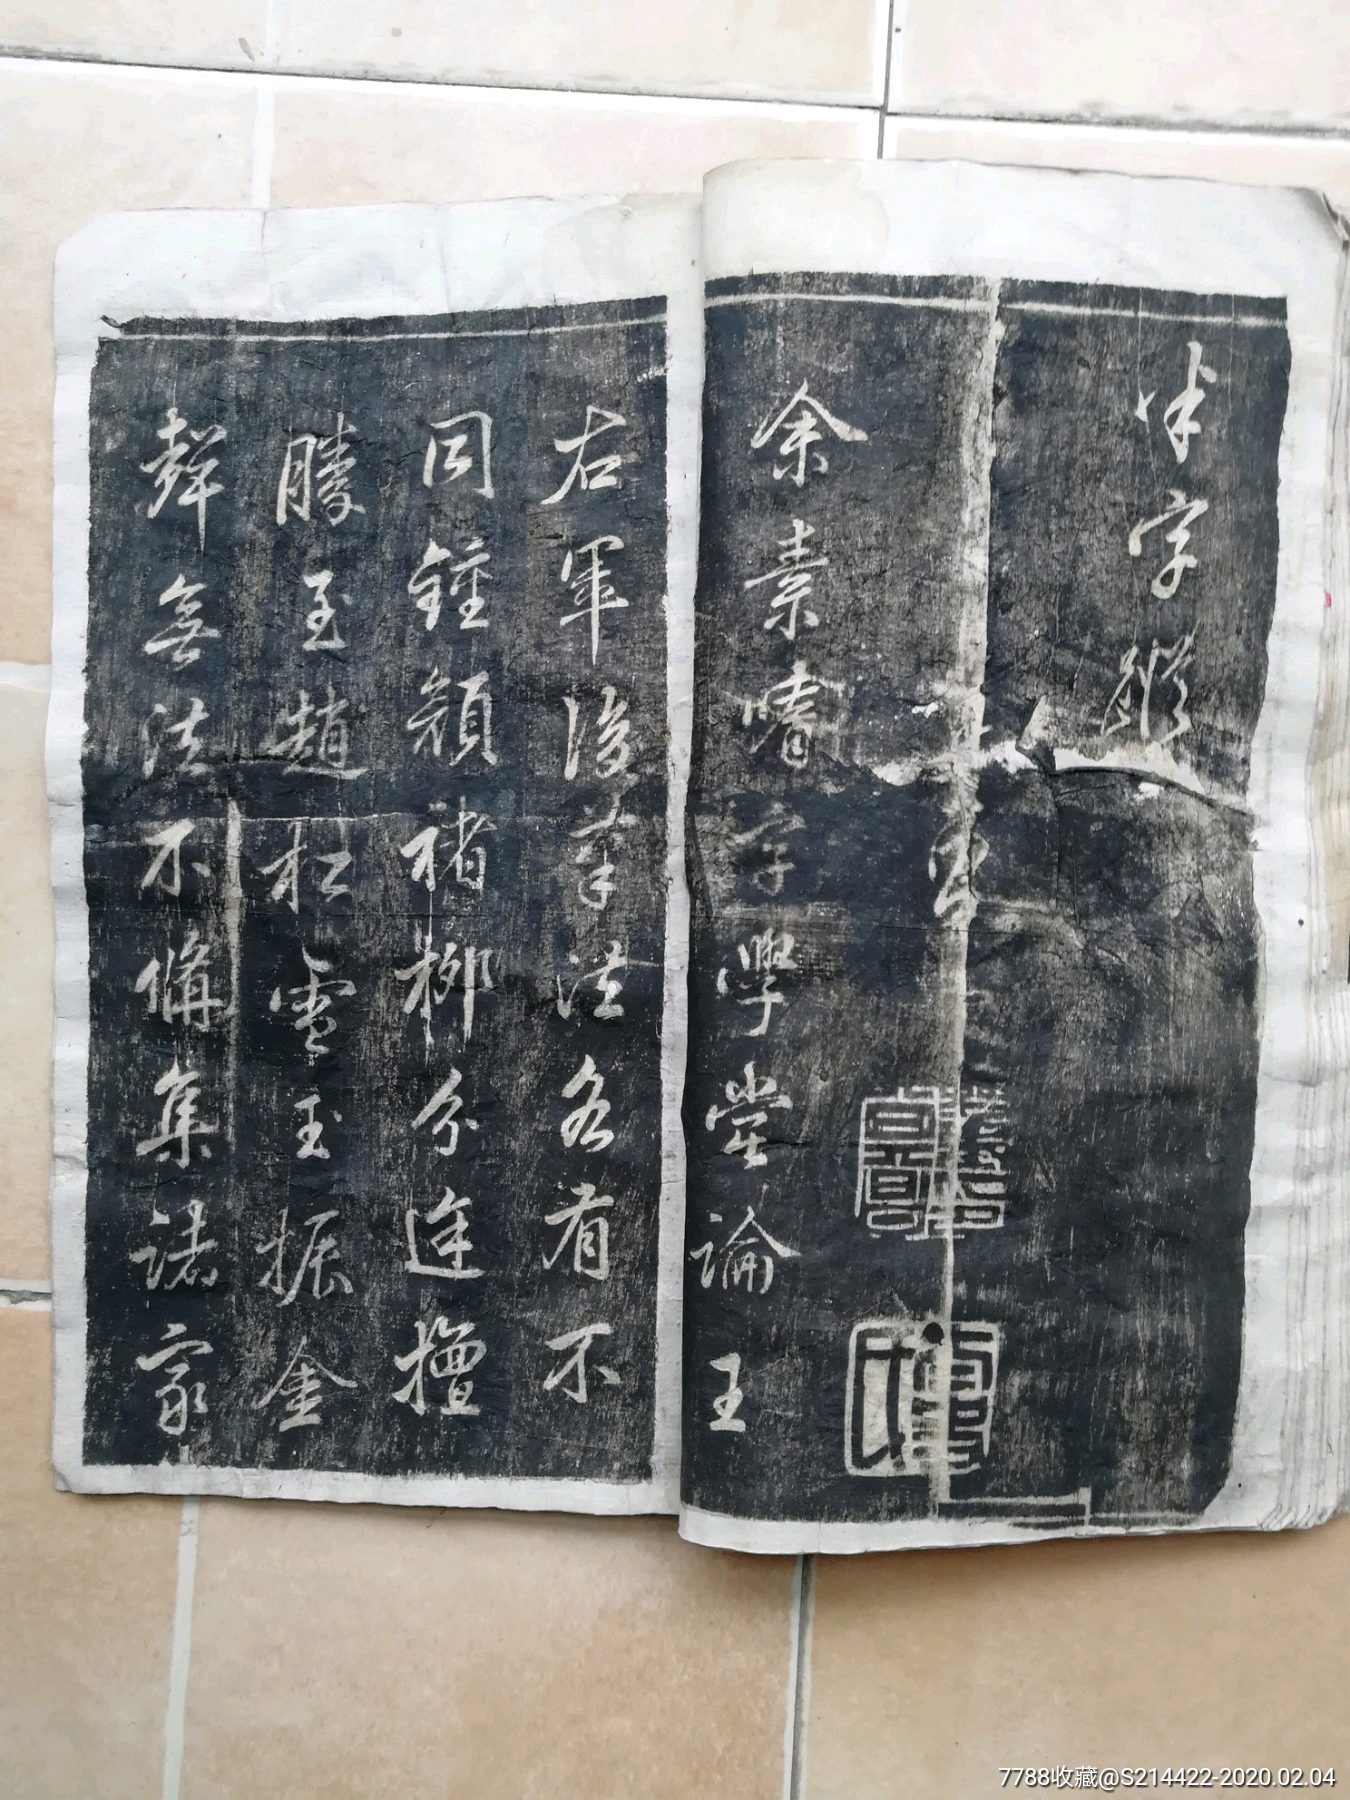 半字蹤
余素嗜字學嘗論王
右軍後筆法各有不
同鍾顏褚柳分途擅
勝至趙松雪玉振金
聲無法不備集諸家
7788收藏@S214422-2020.02.04